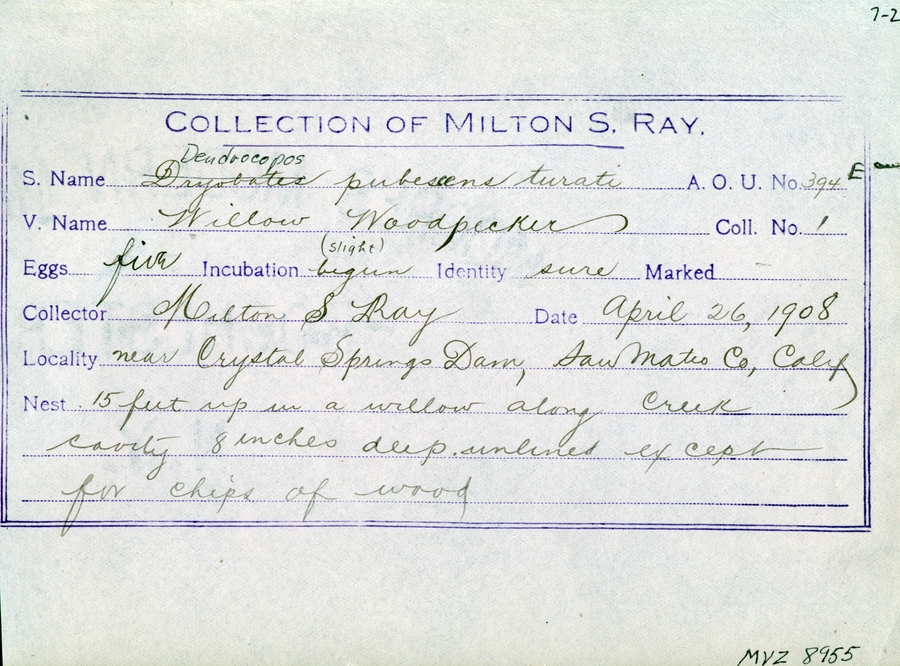 7-2
COLLECTION OF MILTON S. RAY.
Dendrocopos
S. Name Dryobates pubescens turati A. O. U. No. 394 E
V. Name Willow Woodpecker Coll. No. 1
(slight)
Eggs five Incubation begun Identity sure Marked
Collector Milton S Ray Date April 26, 1908
Locality near Crystal Springs Dam, San Mateo Co, Calif
Nest 15 feet up in a willow along Creek
cavity 8 inches deep. unlined except
for chips of wood
MVZ 8955